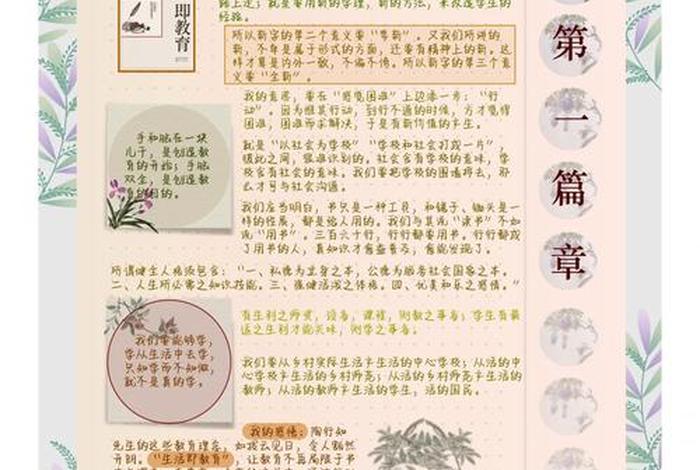 即教育
路上走；就是要用新的学理，新的方法，来改造学生的
经验。
所以新字的第二个意义要“常新”。又我们所讲的
新，不单是属于形式的方面，还要有精神上的新。这
样才算是内外一致，不偏不倚。所以新字的第三个意
义要“全新”。
我的意思，要在“感觉困难”上边添一步：“行
动”。因为惟其行动，到行不通的时候，方才觉得
困难，困难而求解决，于是有新价值的产生。
手和脑在一块
儿干，是创造教
育的开始；手脑
双全，是创造教
育的目的。
就是“以社会为学校”“学校和社会打成一片”，
彼此之间，很难识别的。社会含有学校的意味，学
校含有社会的意味。我们要把学校的围墙拆去，那
么才可与社会沟通。
我们应当明白，书只是一种工具，和锯子、锄头是一
样的性质，都是给人用的。我们与其说“读书”不如
说“用书”。三百六十行，行行都要用书。行行都成
了用书的人，真知识才愈益普及，愈能发现了。
所谓健全人格须包含：“一、私德为立身之本，公德为服务社会国家之本。
二、人生所必需之知识技能。三、强健活泼之体格。四、优美和乐之感情。”
有生利之师资，设备，课程，则教之事备；学生有最
适之生利才能兴味，则学之事备。
我们要能够学，
学从生活中去学，
只知学而不知做，
就不是真的学。
我们要从乡村实际生活产生活的中心学校；从活的中
心学校产生活的乡村师范；从活的乡村师范产生活的
教师；从活的教师产生活的学生，活的国民。
我的感悟：陶行知
先生的这些教育理念，如拨云见日，令人豁然
开朗。“生活即教育”，让教育不再局限于书
第
一
篇
章